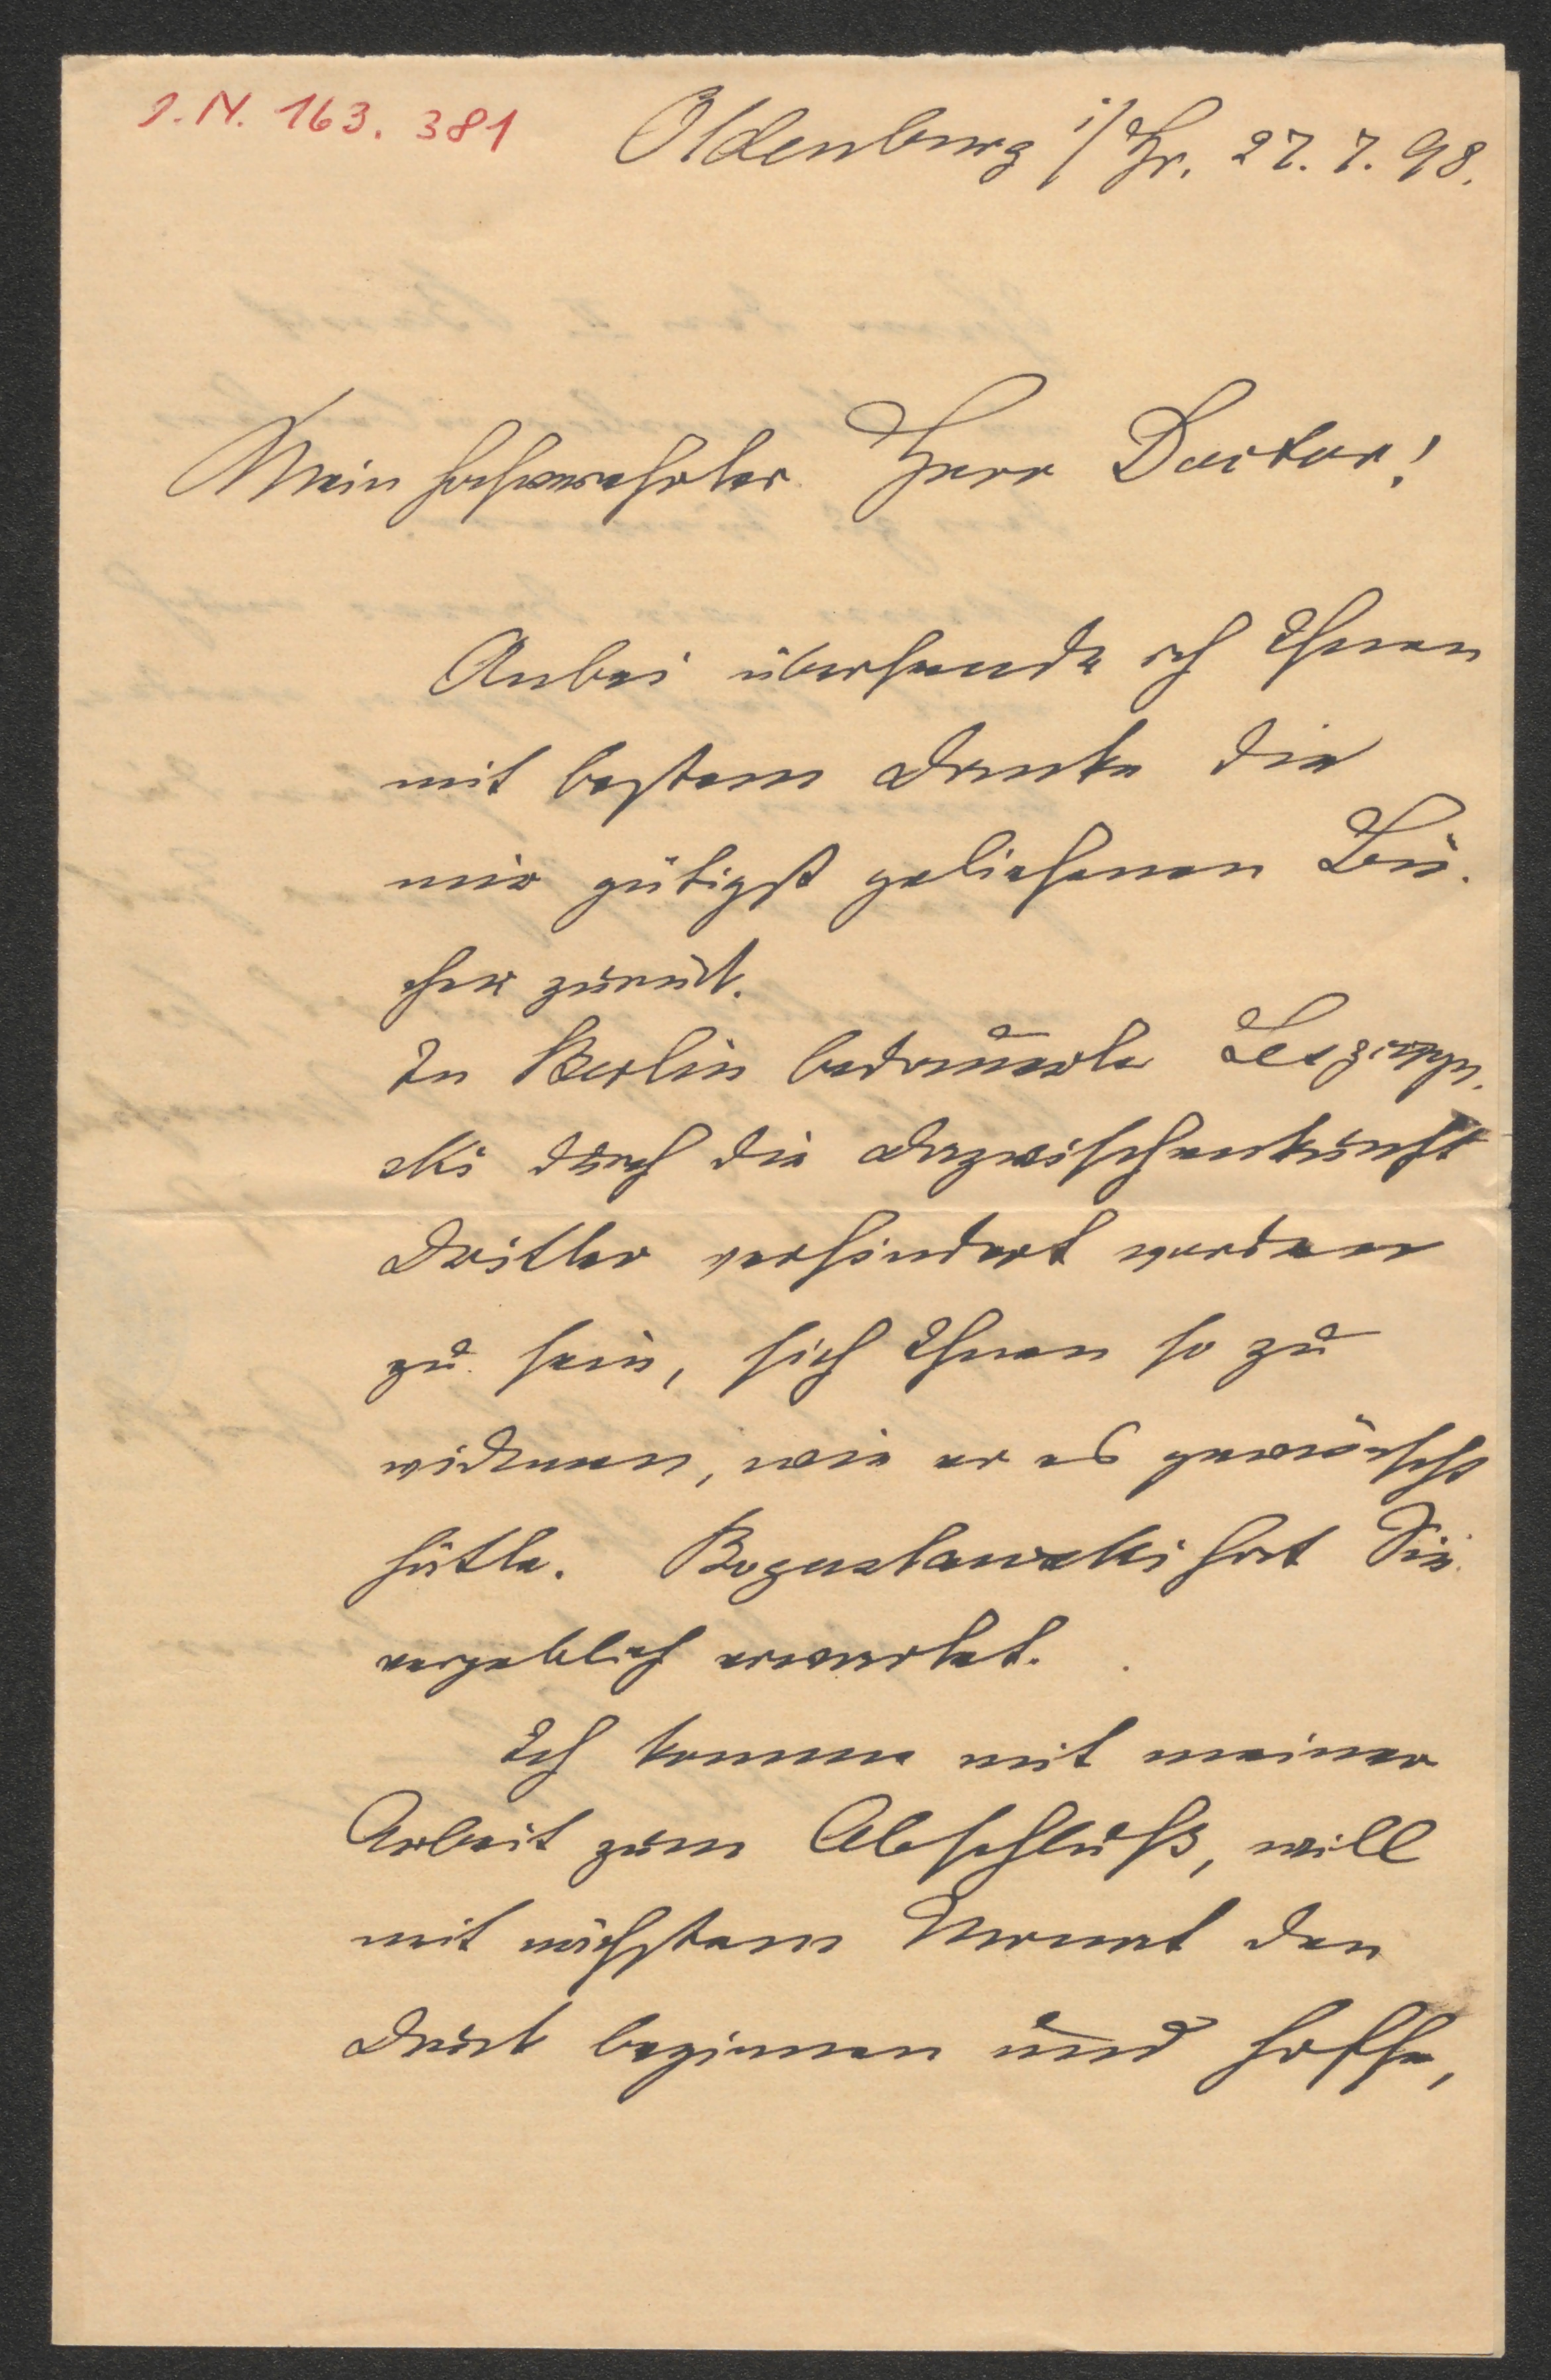 I.N. 163.381
Oldenburg i/Gr. 27.7.98.
Mein hochverehrter Herr Doctor!
Anbei übersende ich Ihnen
mit bestem Danke die
mir gütigst geliehenen Bü-
cher zurück.
In Berlin bedauerte
ski durch die Dazwischenkunft
Dritter verhindert worden
zu sein, sich Ihnen so zu
widmen, wie er es gewünscht
hätte. Boguslawski hat Sie
vergeblich erwartet.
Ich komme mit meiner
Arbeit zum Abschluß, will
mit nächstem Monat den
Druck beginnen und hoffe,